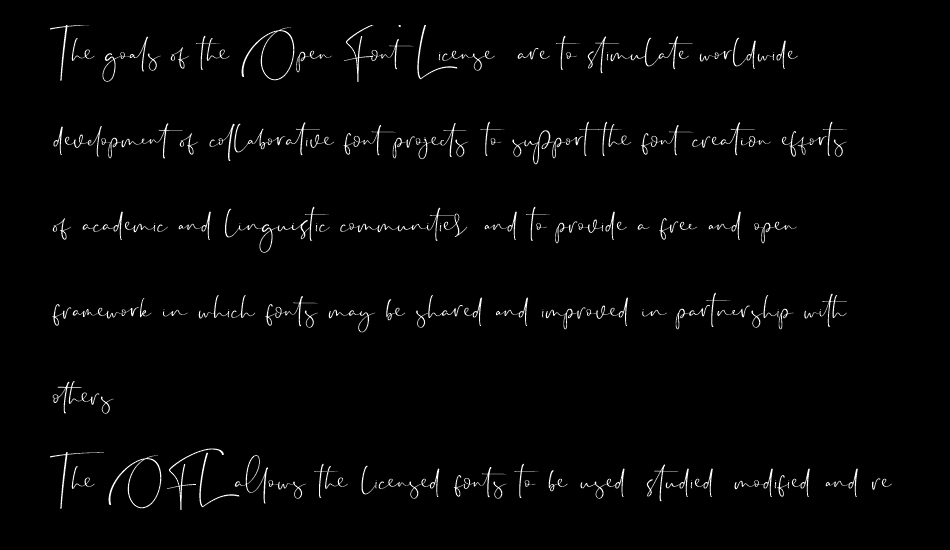 The goals of the Open Font License are to stimulate worldwide
development of collaborative font projects to support the font creation efforts
of academic and linguistic communities and to provide a free and open
framework in which fonts may be shared and improved in partnership with
others
The OFL allows the licensed fonts to be used studied modified and re